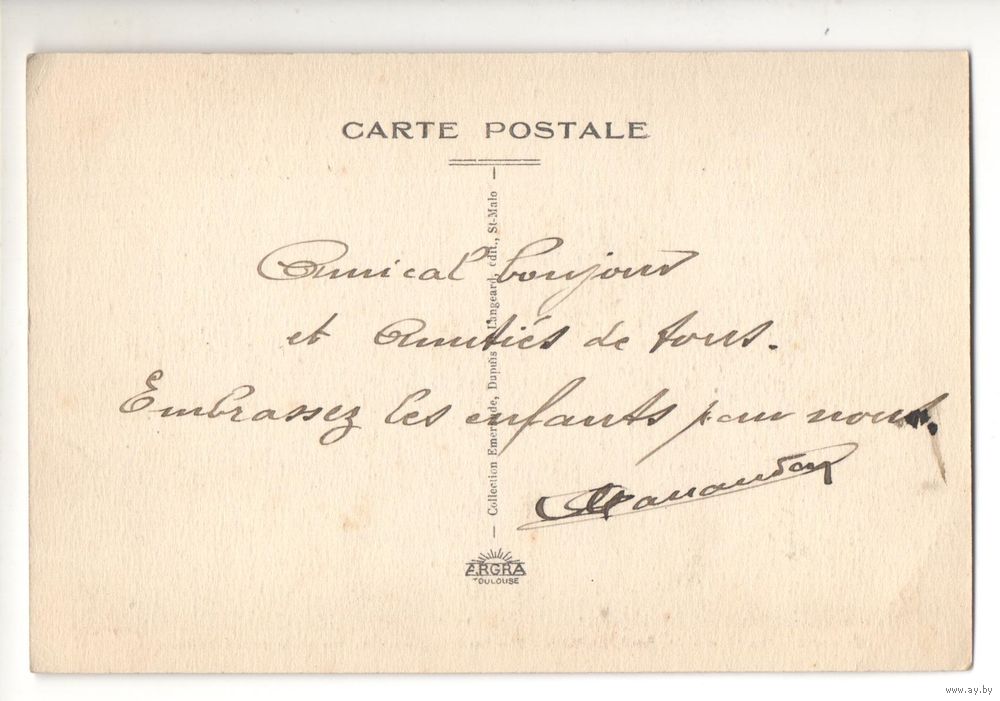 CARTE POSTALE
Collection Emeraude, Dupuis Langeard, édit., St-Malo
Amical bonjour
et amitiés de tous.
Embrassez les enfants pour nous.
ERGRA
TOULOUSE
www.ay.by